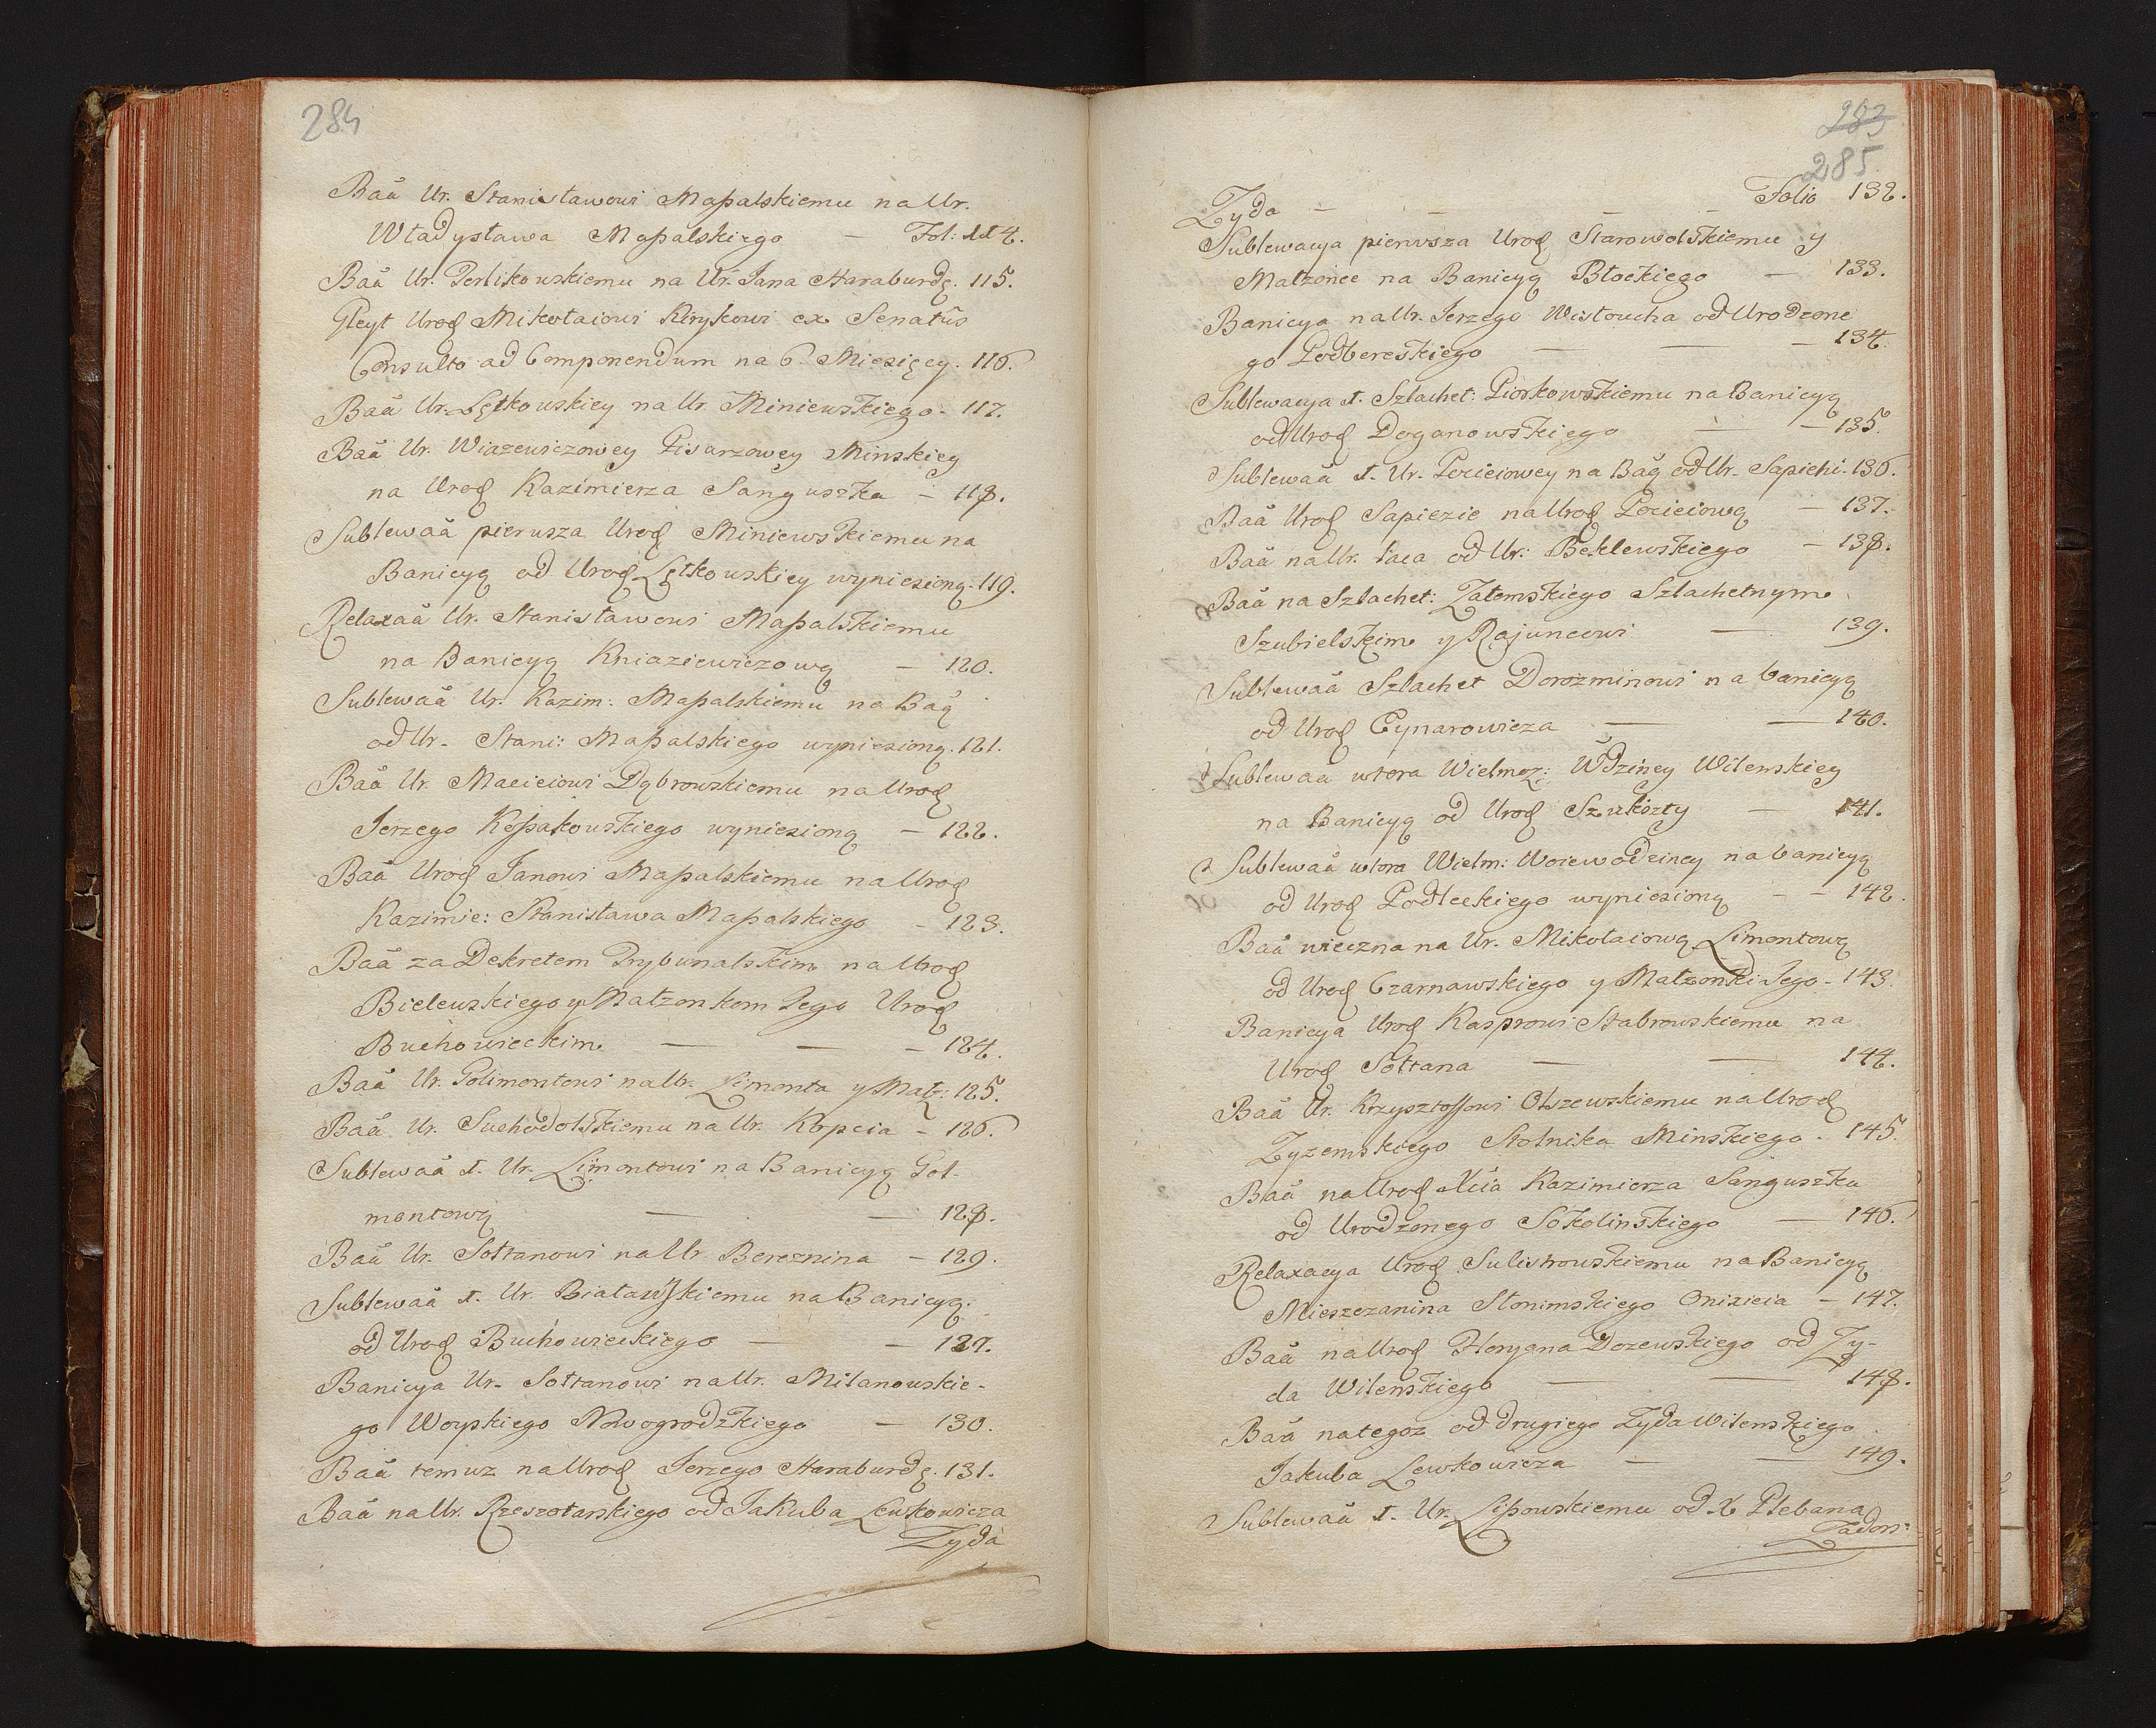 284
Baä Ur. Stanisławowi Maſsalskiemu na Ur.
Władysława Maſsalskiego — Fol: 114.
Baä Ur. Perlikowskiemu na Ur. Jana Haraburdę. 115.
Gleyt Urod Mikołaiowi Kirykowi ex Senatûs
Consulto ad Componendum na 6. Miesięcy. 116.
Baä Ur. Lętkowskiey na Ur. Miniewskiego. 117.
Baä Ur. Wiazewiczowey Pisarzowey Minskiey
na Urod Kazimierza Sanguszka — 118.
Sublewaä pierwsza Urod Miniewskiemu na
Banicyą od Urod Lętkowskiey wyniesioną. 119.
Relaxaä Ur. Stanisławowi Maſsalskiemu
na Banicyą Kniaziewiczową — 120.
Sublewaä Ur. Kazim: Maſsalskiemu na Baą
od Ur. Stani: Maſsalskiego wyniesioną. 121.
Baä Ur. Macieiowi Dąbrowskiemu na Urod
Jerzego Koſsakowskiego wyniesioną — 122.
Baä Urod Janowi Maſsalskiemu na Urod
Kazimie: Stanisława Maſsalskiego - 123.
Baä za Dekretem Trybunalskim na Urod
Bielewskiego y Małzonkom Jego Urod
Buchowieckim — — — 124.
Baä Ur. Golimontowi na Ur. Limonta y Małz: 125.
Baä Ur. Suchodolskiemu na Ur. Kopcia — 126.
Sublewaä 1. Ur. Limontowi na Banicyą Gol-
montową — — 128.
Baä Ur. Sołtanowi na Ur. Bereznina — 129.
Sublewaä 1. Ur. Biaław̃skiemu na Banicyą.
od Urod Buchowieckiego — — 127.
Banicya Ur. Sołtanowi na Ur. Milanowskie-
go Woyskiego Nowogrodzkiego — 130.
Baä temuz na Urod Jerzego Haraburdę. 131.
Baä na Ur. Rzeszotarskiego od Jakuba Lewkowicza
Zyda
283
285
Zyda — — — — Folio 132.
Sublewacya pierwsza Urod Starowolskiemu y
Małzonce na Banicyą Błockiego — 133.
Banicya na Ur. Jerzego Wisłoucha od Urodzone
go Podbereskiego — — — 134.
Sublewacya 1. Szlachet: Piorkowskiemu na Banicyą
od Urod Doganowskiego — — 135.
Sublewaä 1. Ur. Pocieiowey na Baą od Ur. Sapiehi. 136.
Baä Urod Sapiezie na Urod Pocieiową — 137.
Baä na Ur. Paca od Ur: Beklewskiego — 138.
Baä na Szlachet: Załemskiego Szlachetnym
Szubielskim y Rajuncowi — 139.
Sublewaä Szlachet Dorozminowi na banicyą
od Urod Cynarowicza — — 140.
Sublewaä wtora Wielmoz: Wdziney Wilenskiey
na Banicyą od Urod Szukszty — 141.
Sublewaä wtora Wielm: Woiewodziney na banicyą
od Urod Podleckiego wyniesioną — — 142.
Baä wieczna na Ur. Mikołaiową Limontową
od Urod Czarnawskiego y Małzonki Jego - 143.
Banicya Urod Kasprowi Stabrowskiemu na
Urod Sołtana — — 144.
Baä Ur. Krzysztoffowi Olszewskiemu na Urod
Zyzemskiego Stolnika Minskiego. 145.
Baä na Urod Xcia Kazimierza Sanguszka
od Urodzonego Sokolinskiego — 146.
Relaxacya Urod Sulistrowskiemu na Banicyą
Mieszczanina Słonimskiego Onixicia — 147.
Baä na Urod Floryana Dozewskiego od Zy-
da Wilenskiego — — 148.
Baä na tegoz od drugiego Zyda Wilenskiego
Jakuba Lewkowicza — — 149.
Sublewaä 1. Ur. Lipowskiemu od X Plebana